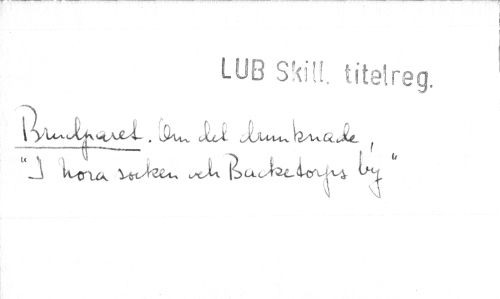 LUB Skill. titelreg.
Brudparet. Om det drunknade,
"I Nora socken och Backetorps by"